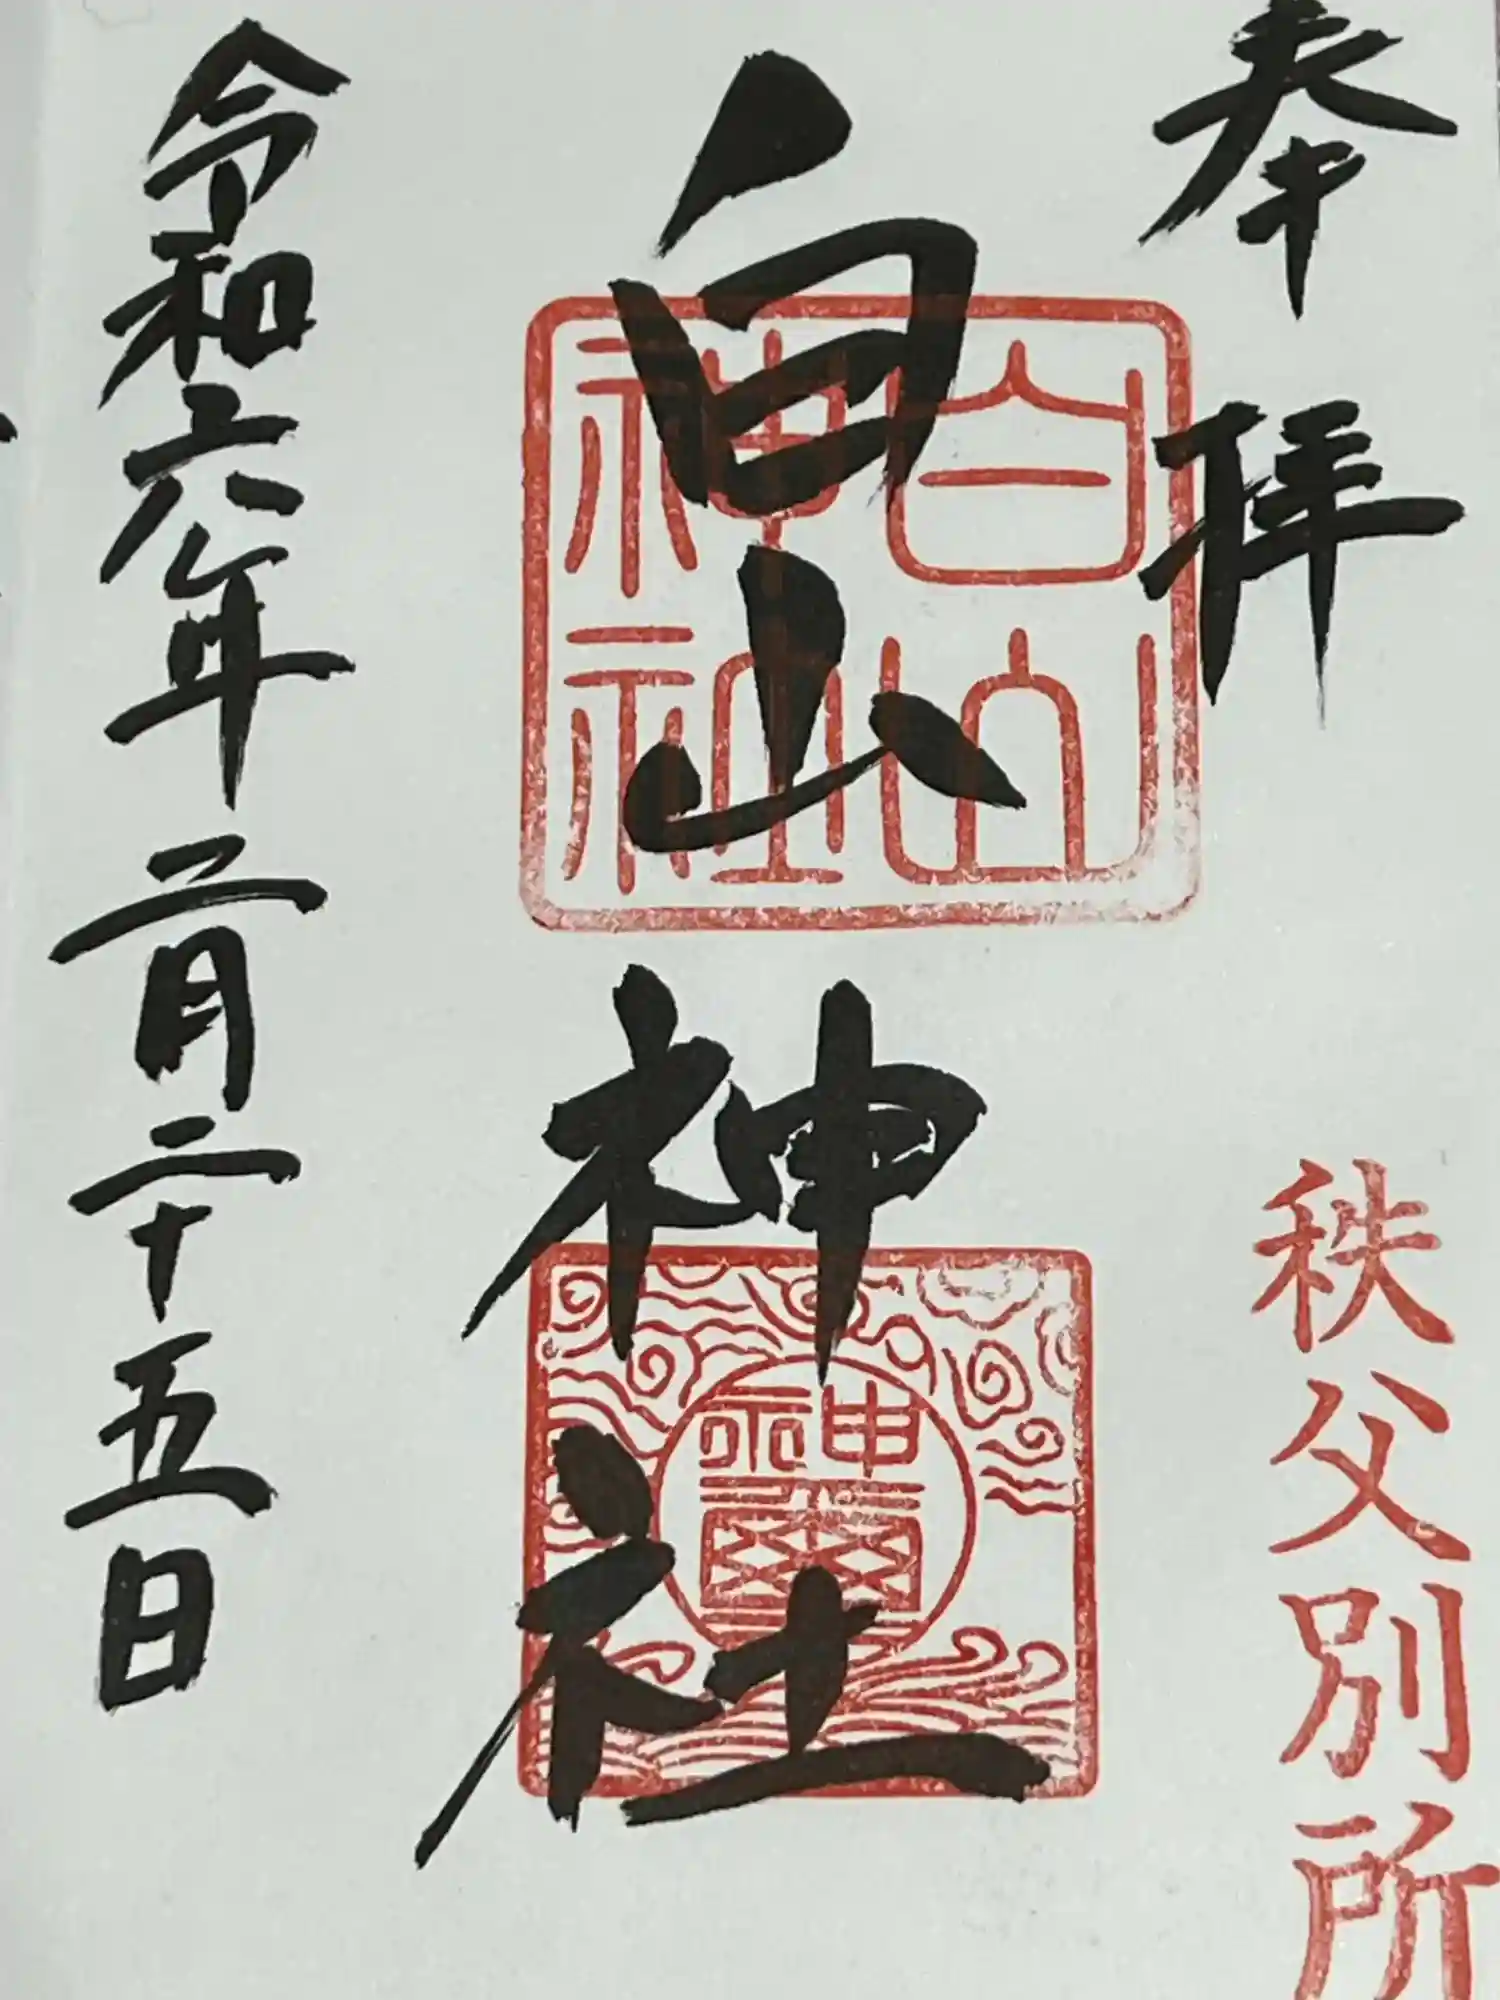 奉拝
秩父別所
白山神社
白山
神社
神璽
令和六年二月二十五日